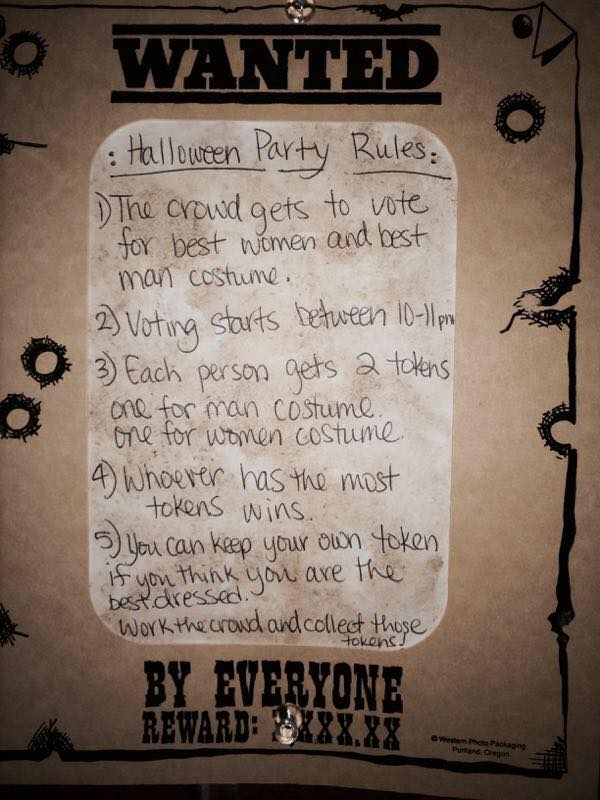 WANTED
: Halloween Party Rules:
1) The crowd gets to vote
for best women and best
man costume.
2) Voting starts between 10-11pm
3) Each person gets 2 tokens
one for man costume.
one for women costume.
4) Whoever has the most
tokens wins.
5) You can keep your own token
if you think you are the
best dressed.
Work the crowd and collect those
tokens!
BY EVERYONE
REWARD: XXX.XX
© Western Photo Packaging
Portland, Oregon